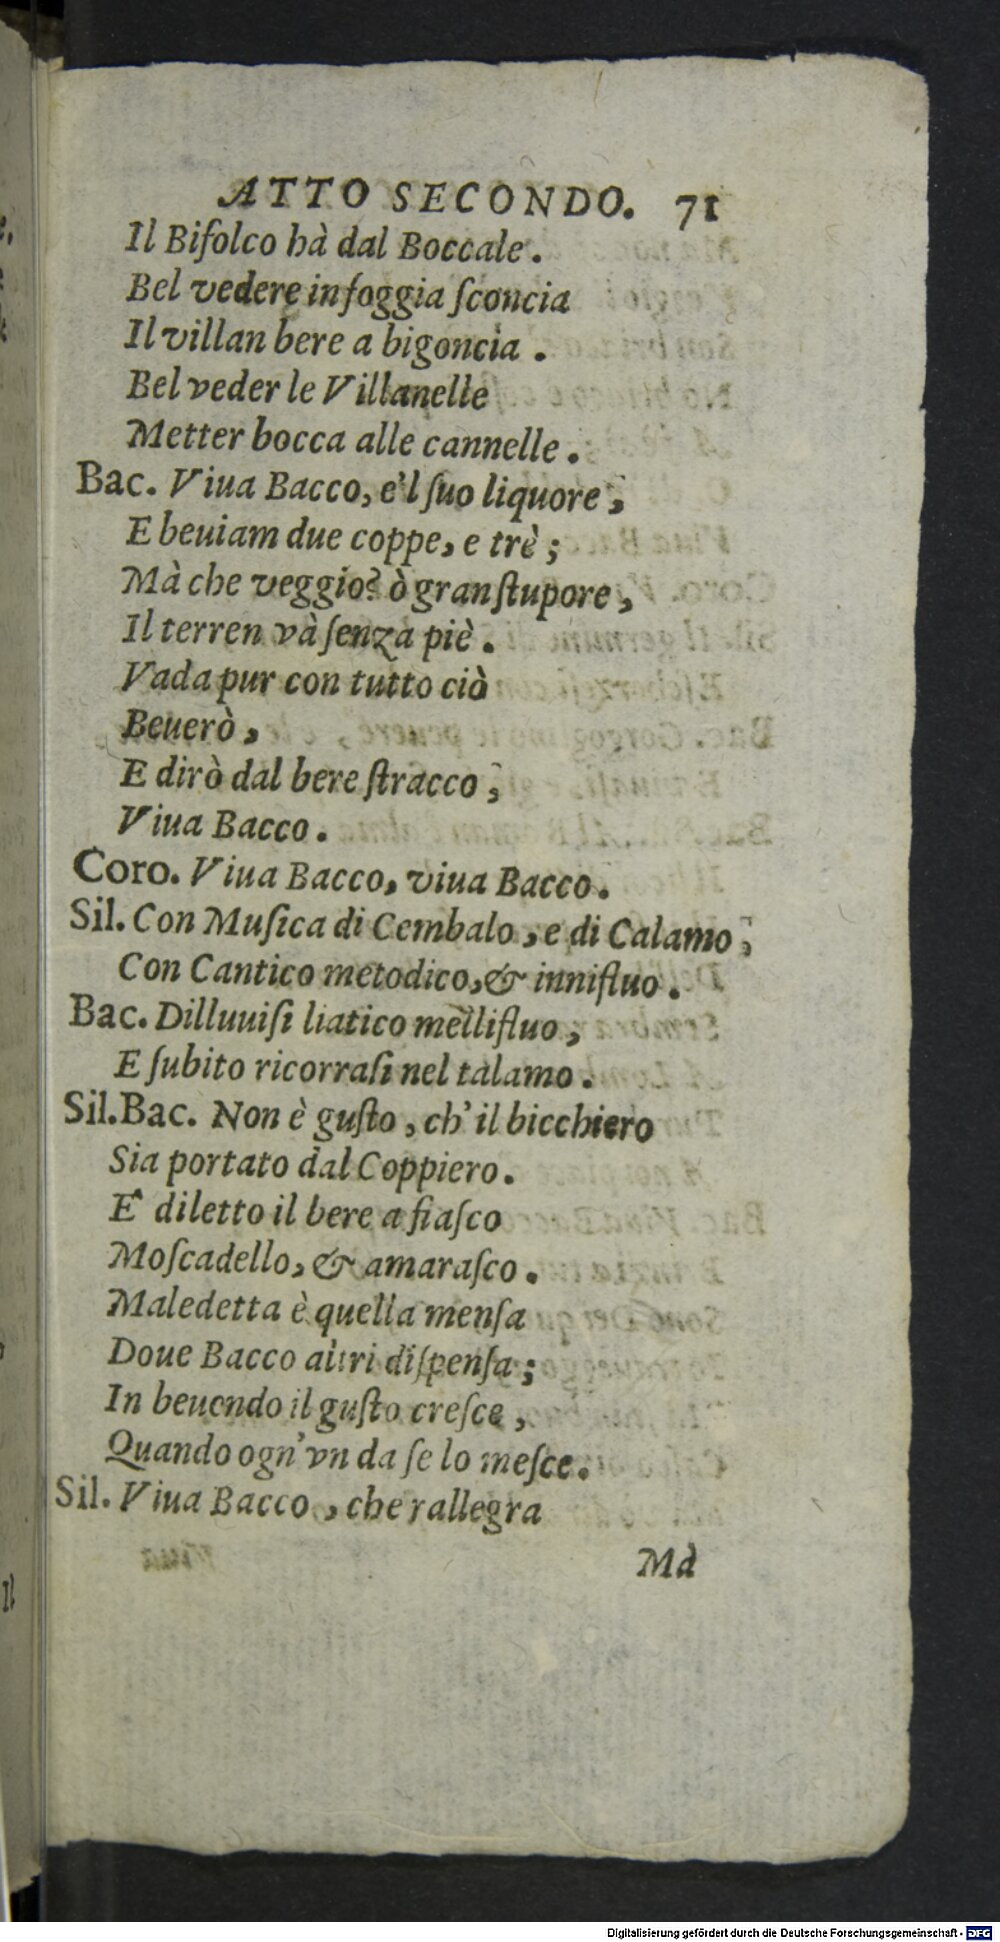 ATTO SECONDO. 71
Il Bifolco hà dal Boccale.
Bel vedere in foggia ſconcia
Il villan bere a bigoncia.
Bel veder le Villanelle
Metter bocca alle cannelle.
Bac. Viua Bacco, e'l ſuo liquore,
E beuiam due coppe, e trè;
Mà che veggio? ò gran ſtupore,
Il terren và ſenza piè.
Vada pur con tutto ciò
Beuerò,
E dirò dal bere ſtracco,
Viua Bacco.
Coro. Viua Bacco, viua Bacco.
Sil. Con Muſica di Cembalo, e di Calamo,
Con Cantico metodico, & innifluo.
Bac. Dilluuiſi liatico mellifluo,
E ſubito ricorraſi nel talamo.
Sil. Bac. Non è guſto, ch' il bicchiero
Sia portato dal Coppiero.
E' diletto il bere a fiaſco
Moſcadello, & amaraſco.
Maledetta è quella menſa
Doue Bacco altri diſpenſa;
In beuendo il guſto creſce,
Quando ogn'vn da ſe lo meſce.
Sil. Viua Bacco, che rallegra
Mà
Il
Digitalisierung gefördert durch die Deutsche Forschungsgemeinschaft - DFG